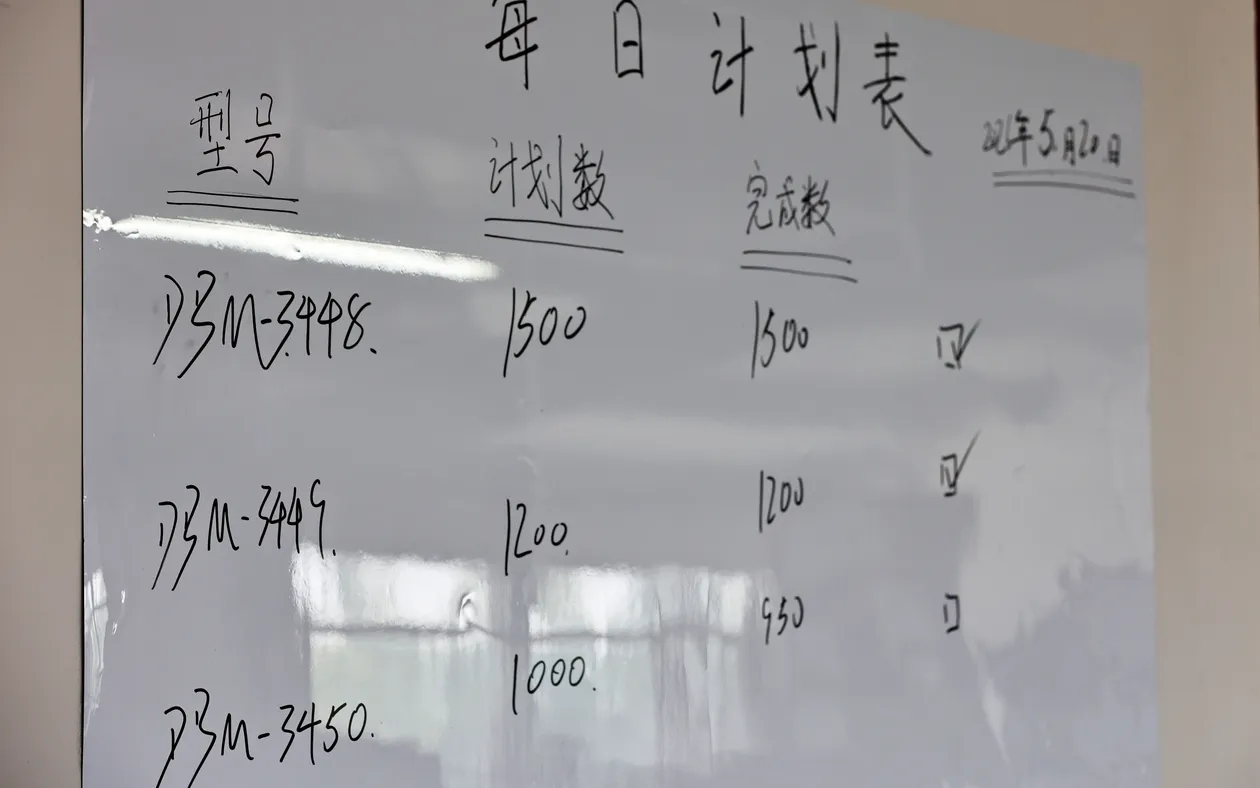 每日计划表
2021年5月20日
型号 计划数 完成数
DBM-3448. 1500 1500 ☑
DBM-3449. 1200. 1200 ☑
DBM-3450. 1000. 950 □